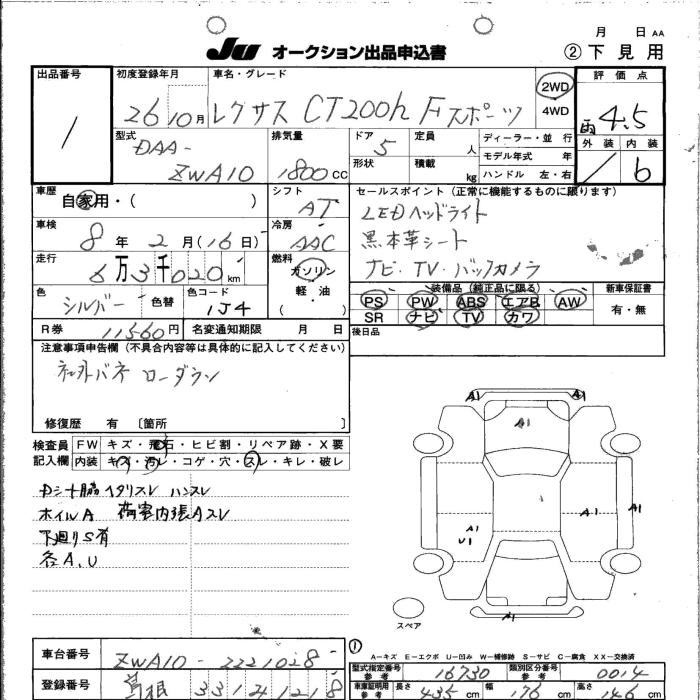 月 日 AA
JU オークション出品申込書
② 下見用
出品番号
初度登録年月
車名・グレード
評価点
/
26 10月
レクサス CT200h Fスポーツ
2WD
4WD
雨 4.5
型式
排気量
ドア
定員
ディーラー・並行
外装 内装
DAA-
5
人
モデル年式 年
/ 6
ZWA10
1800 CC
形状
積載
kg
ハンドル 左・右
車歴
自家用・( )
シフト
AT
セールスポイント(正常に機能するものに限ります)
LEDヘッドライト
車検
8年 2月(16日)
冷房
AAC
黒本革シート
走行
6万3千020km
燃料
ガソリン
軽油
( )
ナビ・TV・バックカメラ
色
シルバー
色替
色コード
1J4
装備品(純正品に限る)
新車保証書
PS PW ABS エアB AW
有・無
SR ナビ TV カワ
R券 11560円
名変通知期限 月 日
後日品
注意事項申告欄(不具合内容等は具体的に記入してください)
社外バネ ローダウン
修復歴 有 [箇所 ]
検査員 FW キズ・飛石・ヒビ割・リペア跡・X要
記入欄 内装 キズ・汚レ・コゲ・穴・スレ・キレ・破レ
Dシート脇ヘタリスレ ハンスレ
ホイルA 荷室内張Aスレ
下廻りS有
各A.U
A1 A1
A1
A1 A1
A1
U1
A1
スペア
①
A-キズ E-エクボ U-凹み W-補修跡 S-サビ C-腐食 XX-交換済
車台番号 ZWA10-2221028
型式指定番号 参考 16730
類別区分番号 参考 0014
登録番号 島根 331 1218
車車証明用 参考 長さ 435cm 幅 176cm 高さ 146cm